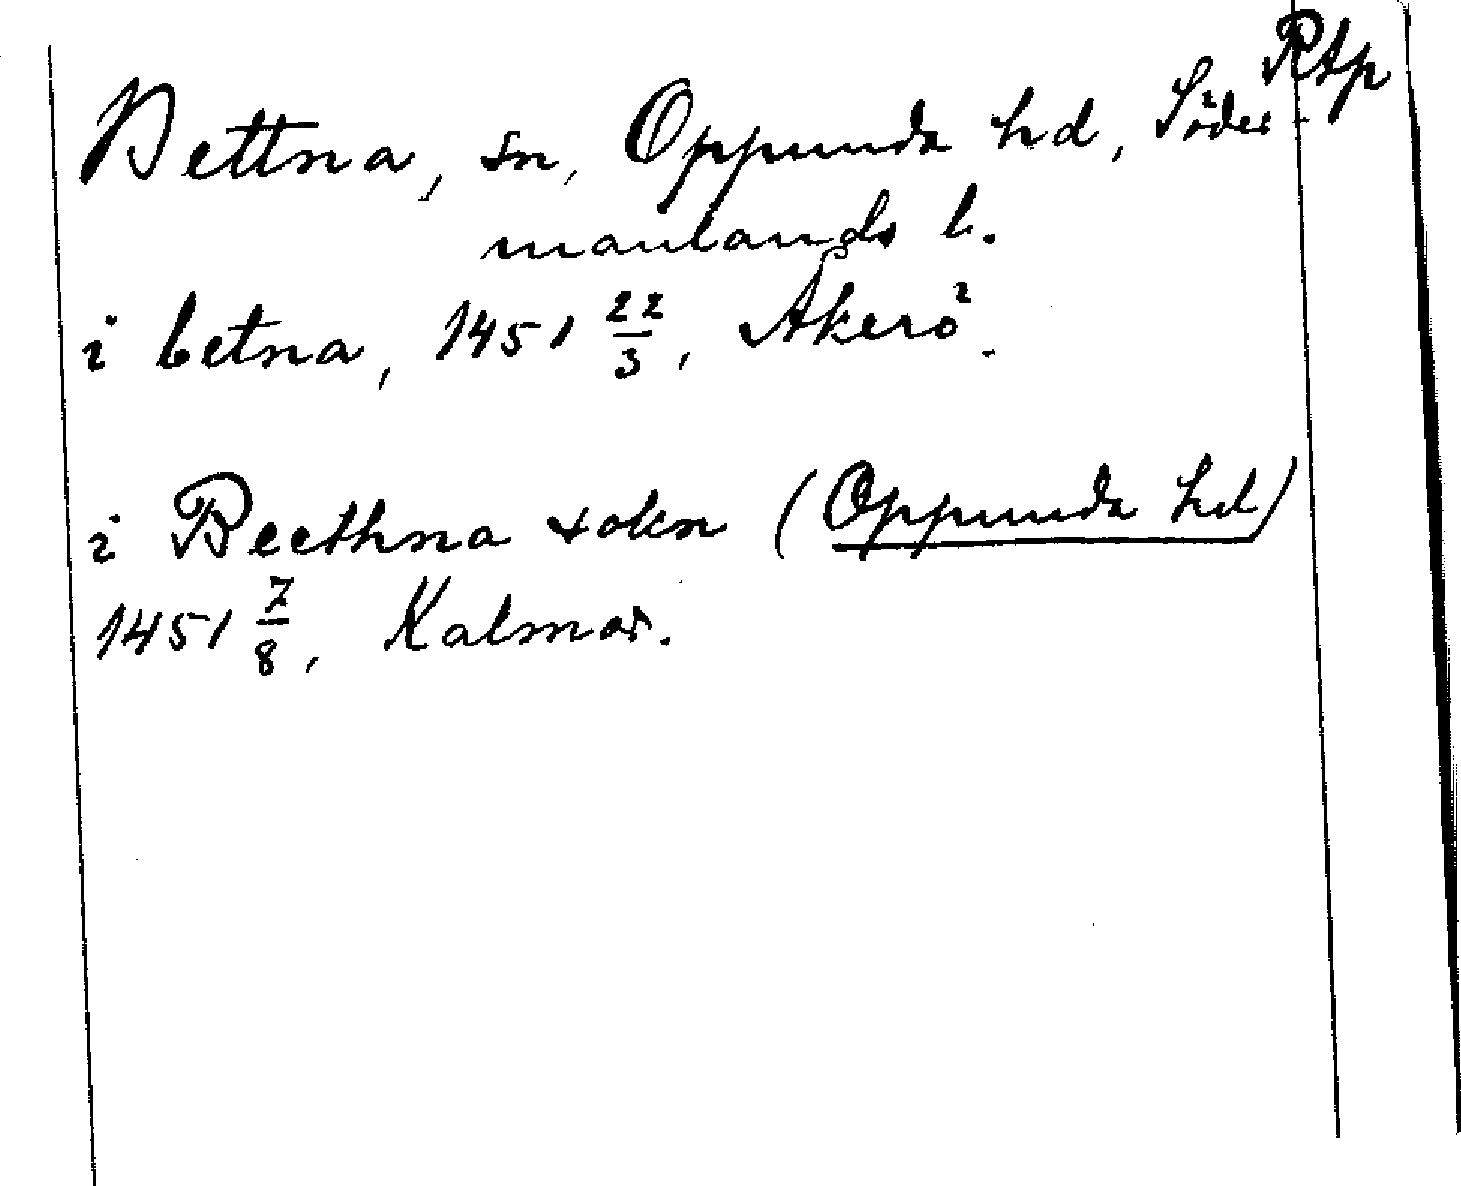 Rtp
Bettna, sn, Oppunda hd, Söder-
manlands l.
i betna, 1451 22/3, Åkerö.
i Beethna sokn (Oppunda hd)
1451 7/8, Kalmar.